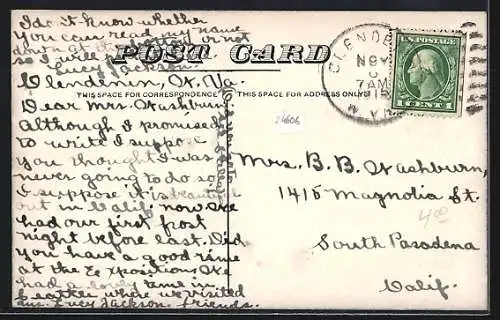 I do't know whether
you can read my name
down at the bottom or not
so I will
Lucy Jackson.
POST CARD
Clendenin, W. Va.
THIS SPACE FOR CORRESPONDENCE
THIS SPACE FOR ADDRESS ONLY
Dear Mrs. Washburn,
Although I promised
to write I suppose
you thought I was
never going to do so.
I suppose it is beautiful
out in Calif. now. We
had our first frost
night before last. Did
you have a good time
at the Expositions. We
had a lovely time in
where we visited
friends.
Lucy Jackson.
CLENDE
NOV
7 AM
1915
W. VA.
U.S. POSTAGE
1 CENT 1
24606
Mrs. B. B. Washburn,
1415 Magnolia St.
South Pasadena
Calif.
4.00